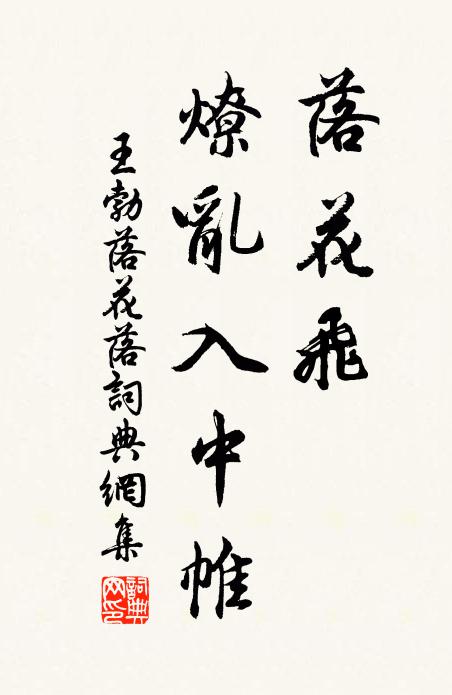 落花飛
燎亂入中帷
王勃落花落詞典網集
詞典網印